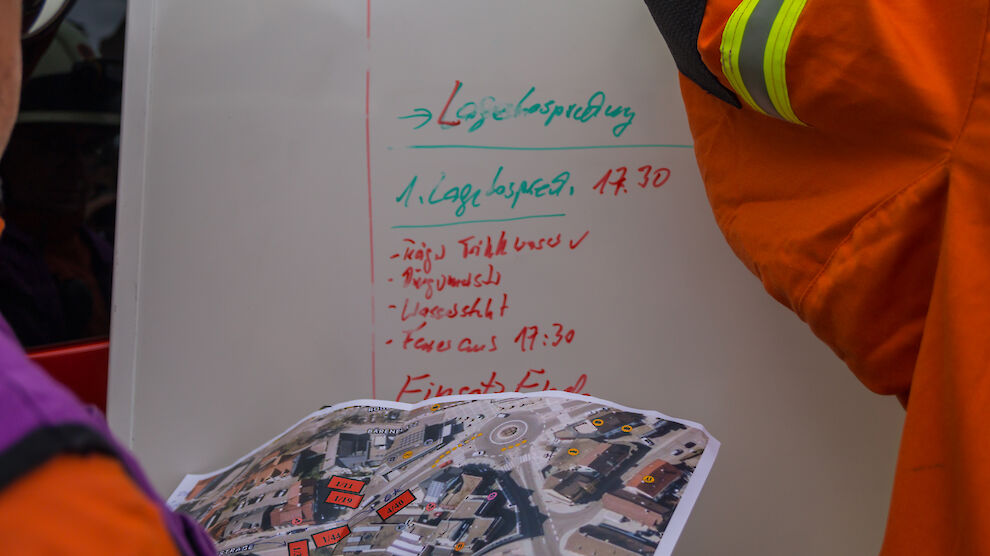 → Lagebesprechung
1. Lagebesprech. 17.30
- Träger Trinkwasser ✓
- Bürgermeister
- Wasserstht
- Feuer aus 17:30
Einsatz Ende
BÄREN
1/11
1/19
4/40
1/44